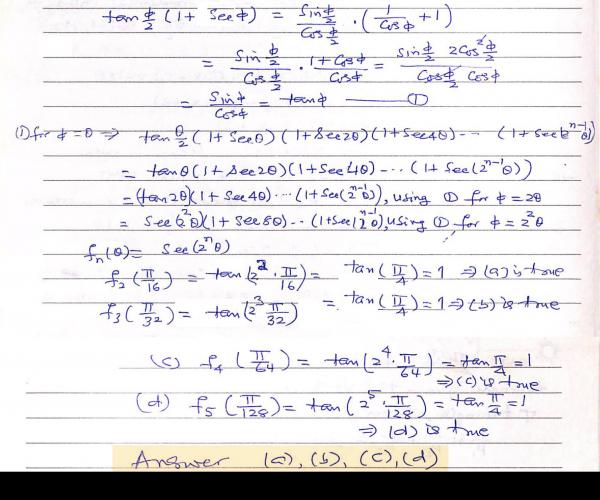 tan φ/2 (1 + Secφ) = Sin φ/2 / Cos φ/2 · (1/Cosφ + 1)
= Sin φ/2 / Cos φ/2 · 1+Cosφ / Cosφ = Sin φ/2 2Cos² φ/2 / Cos φ/2 Cosφ
= Sinφ / Cosφ = tanφ —— ①
① for φ = θ ⇒ tan θ/2 (1 + Secθ) (1 + Sec2θ) (1 + Sec4θ) --- (1 + Sec 2ⁿ⁻¹θ)
= tanθ (1 + Sec2θ) (1 + Sec4θ) --- (1 + Sec(2ⁿ⁻¹θ))
= (tan2θ)(1 + Sec4θ) --- (1 + Sec(2ⁿ⁻¹θ)), using ① for φ = 2θ
= Sec(2²θ)(1 + Sec8θ) -- (1 + Sec(2ⁿ⁻¹θ), using ① for φ = 2²θ
fₙ(θ) = Sec(2ⁿθ)
f₂(π/16) = tan(2² · π/16) = tan(π/4) = 1 ⇒ (a) is true
f₃(π/32) = tan(2³ π/32) = tan(π/4) = 1 ⇒ (b) is true
(c) f₄(π/64) = tan(2⁴ · π/64) = tan π/4 = 1
⇒ (c) is true
(d) f₅(π/128) = tan(2⁵ · π/128) = tan π/4 = 1
⇒ (d) is true
Answer (a), (b), (c), (d)